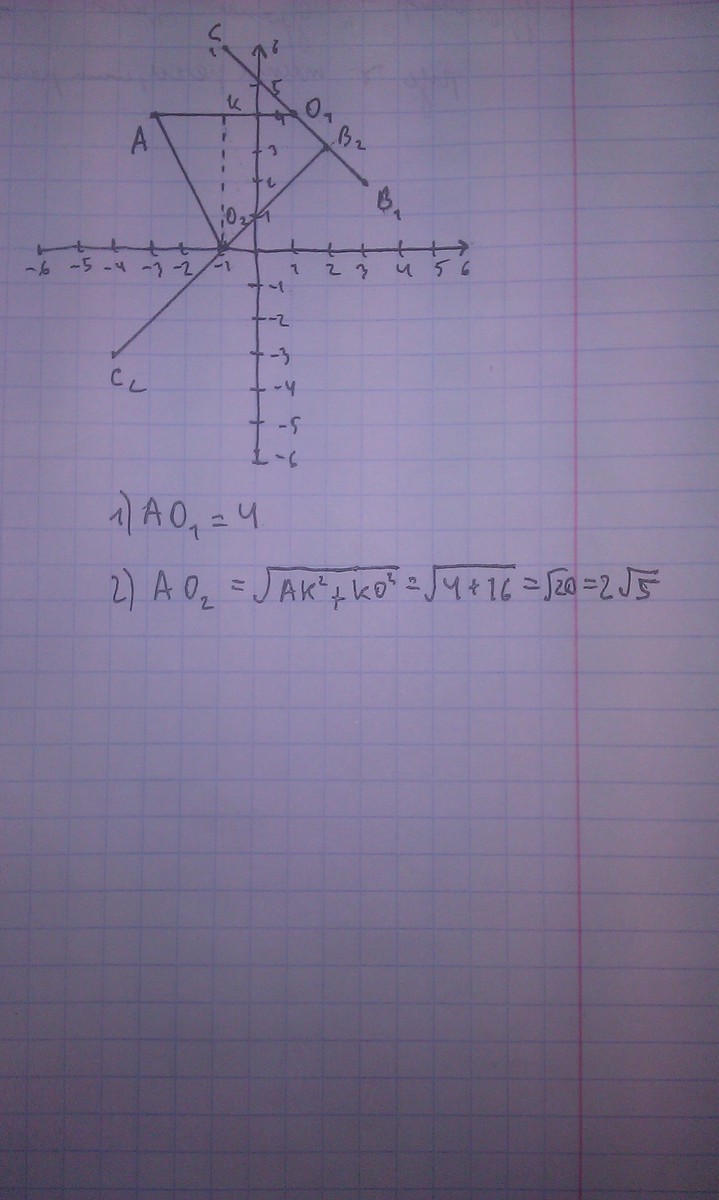 C₁ 6
5
A K 4 O₁
3 B₂
2
O₂ 1 B₁
-6 -5 -4 -3 -2 -1 1 2 3 4 5 6
-1
-2
-3
C₂
-4
-5
-6
1) AO₁ = 4
2) AO₂ = √AK²+KO² = √4+16 = √20 = 2√5